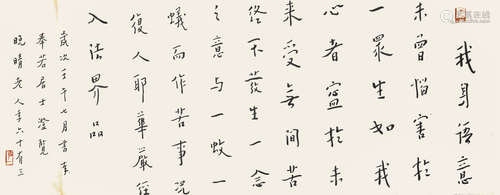 我身語意
未曾惱害於
一眾生如我
心者寧於未
來受無間苦
終不發生一念
之意與一蚊一
蟻而作苦事況
復人耶華嚴經
入法界品
歲次壬午七月書
奉若居士澄覽
晚晴老人年六十有三